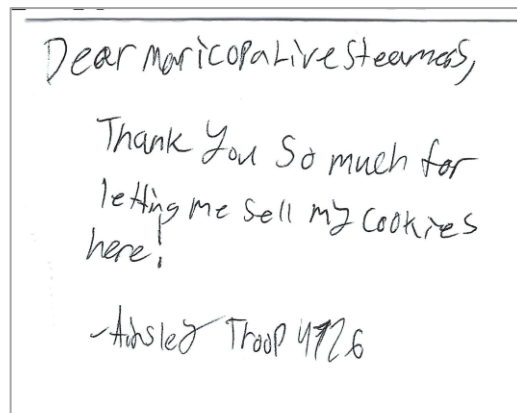 Dear Maricopa Live Steamers,
Thank you so much for
letting me sell my cookies
here!
-Ainsley Troop 4726